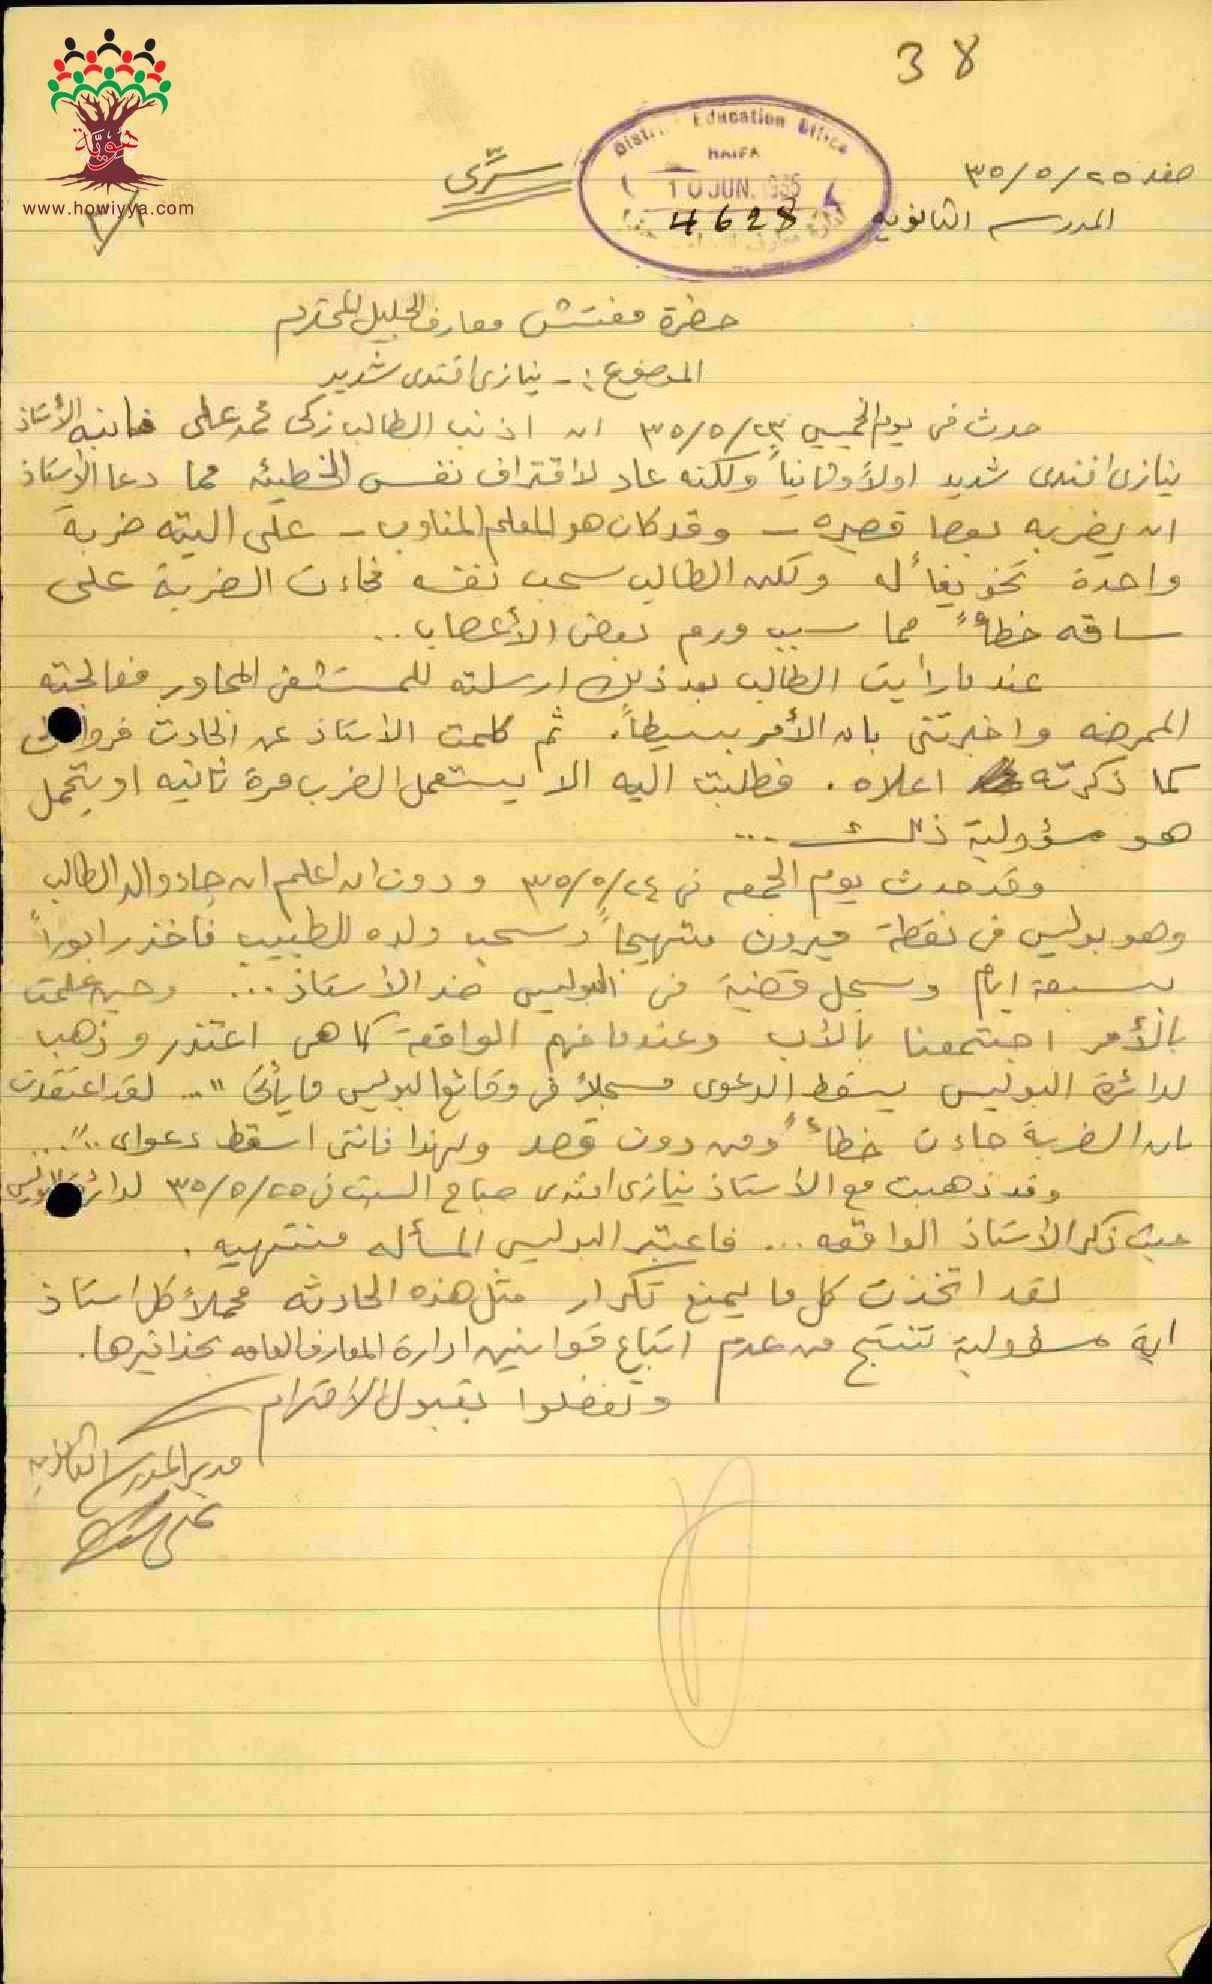 38
هوية
www.howiyya.com
District Education Office
HAIFA
10 JUN. 1935
4628
سرّى
صفد ٢٥/٥/٣٥
المدرسه الثانويه
حضرة مفتش معارف الجليل المحترم
الموضوع :ـ نيازى افندى شديد
حدث فى يوم الخميس ٢٣/٥/٣٥ ان اذنب الطالب زكى محمد على فانبه الأستاذ
نيازى افندى شديد اولاً وثانياً ولكنه عاد لاقتراف نفس الخطيئه مما دعا الاستاذ
ان يضربه بعصا قصيره – وقد كان هو المعلم المناوب – على اليته ضربة
واحدة تخويفاً له ولكن الطالب سحب نفسه فجاءت الضربة على
ساقه خطأً مما سبب ورم بعض الأعصاب ..
عندما رأيت الطالب بعد ذلك ارسلته للمستشفى المجاور فعالجته
الممرضه واخبرتنى بان الأمر بسيطاً. ثم كلمت الاستاذ عن الحادث فروا لى
كما ذكرته اعلاه . فطلبت اليه الا يستعمل الضرب مرة ثانيه او يتحمل
هو مسؤولية ذلك ...
وقد حدث يوم الجمعه فى ٢٤/٥/٣٥ ودون ان اعلم ان جاء والد الطالب
وهو بوليس فى نقطة ميرون متهيجاً وسحب ولده للطبيب فاخذ رابوراً
بسبعة ايام وسجل قضية فى البوليس ضد الأستاذ ... وحين علمت
بالأمر اجتمعنا بالأب وعندما فهم الواقعة كما هى اعتذر وذهب
لدائرة البوليس يسقط الدعوى مسجلاً فى وقائع البوليس ما يأتى "... لقد اعتقدت
بان الضربة جاءت خطأً ومن دون قصد ولهذا فاننى اسقط دعواى .."...
وقد ذهبت مع الأستاذ نيازى افندى صباح السبت فى ٢٥/٥/٣٥ لدائرة البوليس
حيث ذكر الاستاذ الواقعه ... فاعتبر البوليس المسأله منتهيه .
لقد اتخذت كل ما يمنع تكرار مثل هذه الحادثه محملاً كل استاذ
اية مسؤولية تنتج من عدم اتباع قوانين ادارة المعارف العامه بحذافيرها.
وتفضلوا بقبول الاحترام
مدير المدرسه الثانويه